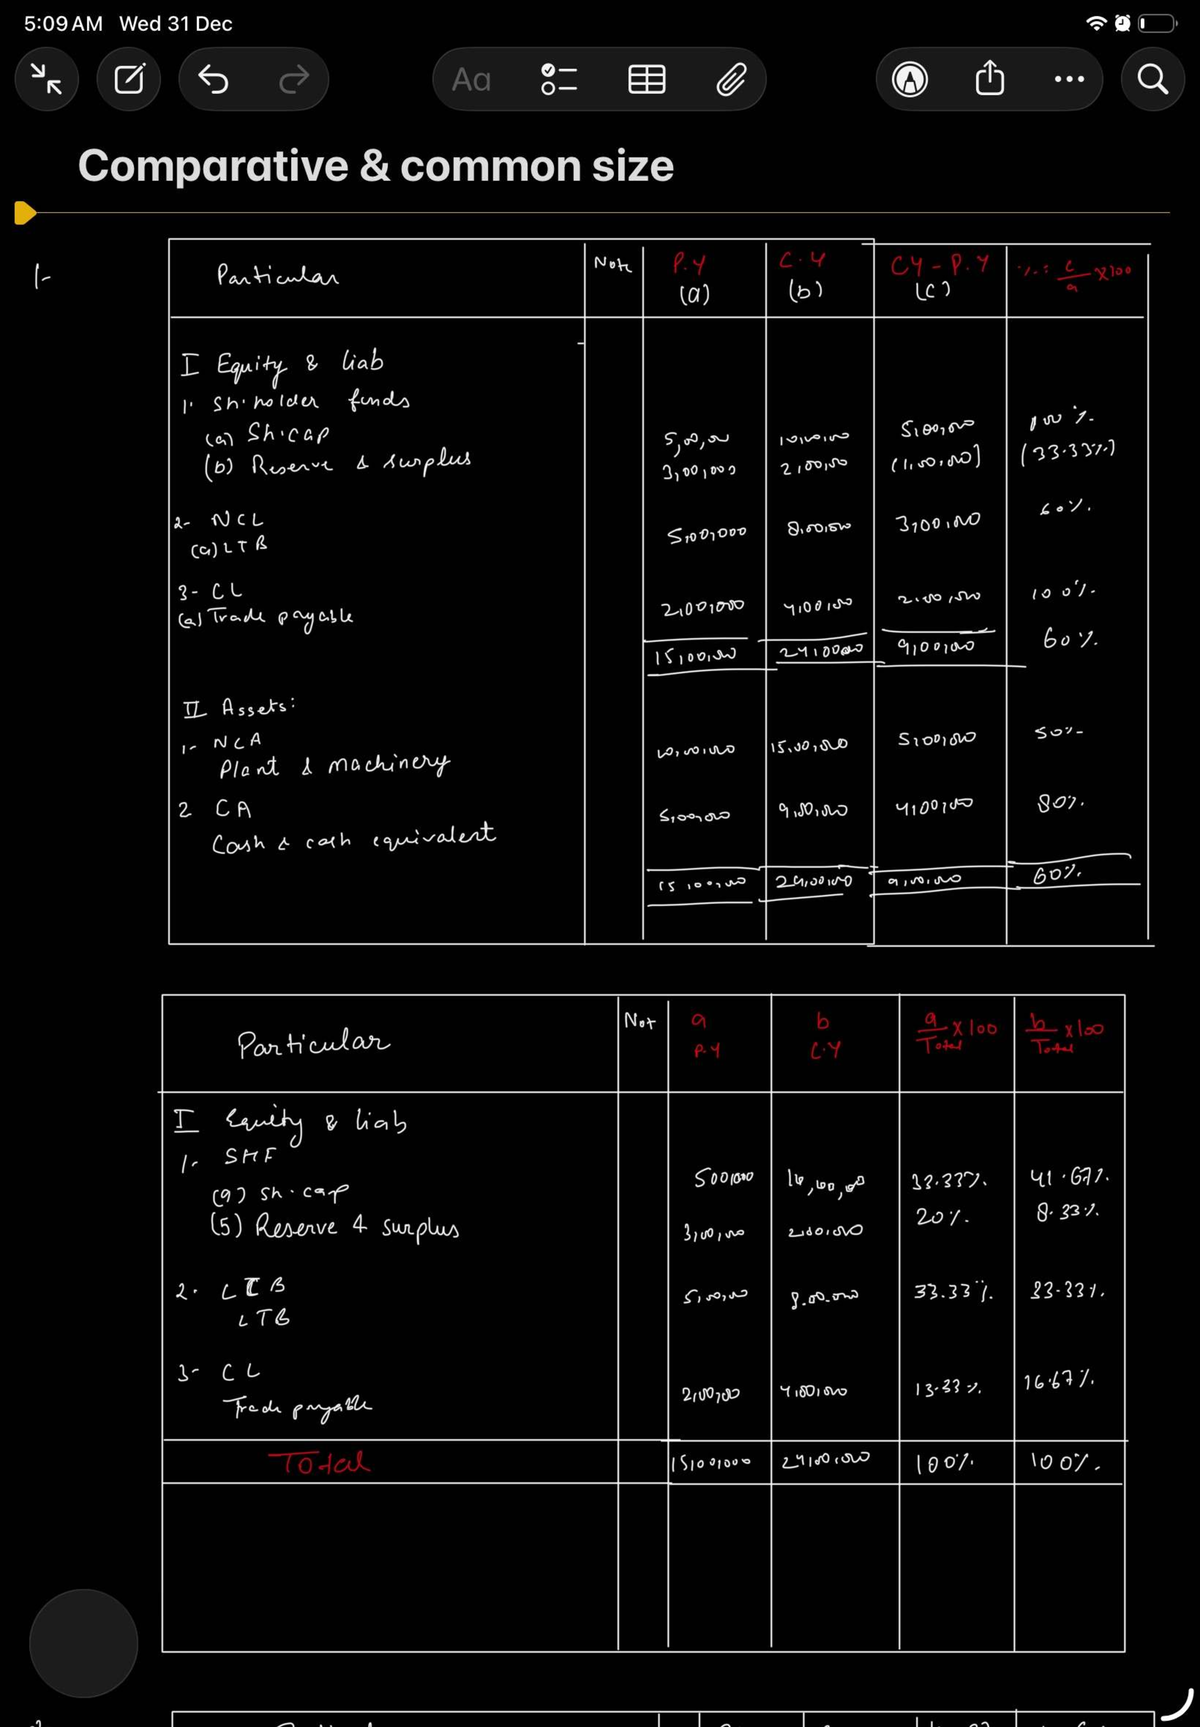 5:09 AM Wed 31 Dec
Aa
Comparative & common size
1-
Particular Note P.Y (a) C.Y (b) CY - P.Y (c) %: c/a x100
I Equity & liab
1. Sh.holder funds
(a) Sh.cap 5,00,00 10,00,00 5,00,000 100%
(b) Reserve & surplus 3,00,000 2,00,00 (1,00,000) (33.33%)
2- NCL
(a) LTB 5,00,000 8,00,500 3,00,000 60%
3- CL
(a) Trade payable 2,00,000 4,00,00 2,00,000 100%
15,00,00 24,00,00 9,00,000 60%
II Assets:
1- NCA
Plant & machinery 10,00,000 15,00,000 5,00,000 50%
2 CA
Cash & cash equivalent 5,00,000 9,00,000 4,00,000 80%
15,00,00 24,00,00 9,00,00 60%
Particular Not a P.Y b C.Y a/Total x100 b/Total x100
I Equity & liab
1- SHF
(a) Sh.cap 500,000 10,00,00 33.33% 41.67%
(5) Reserve & surplus 3,00,00 2,00,000 20% 8.33%
2. LTB
LTB 5,00,00 8.00.000 33.33% 33.33%
3- CL
Trade payable 2,00,00 4,00,000 13.33% 16.67%
Total 15,00,000 24,00,000 100% 100%